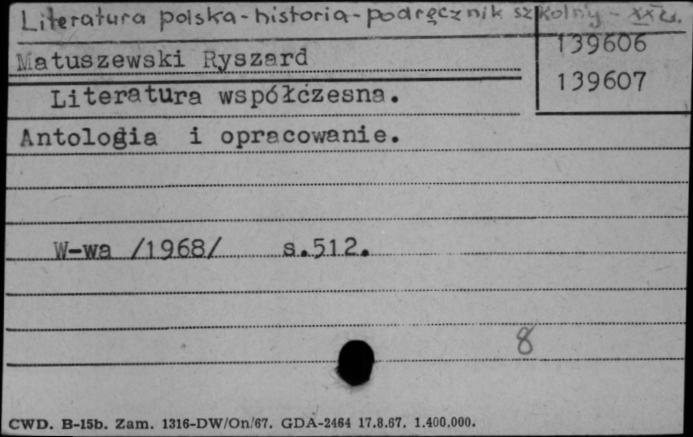 Literatura polska - historia - podręcznik szkolny - XX w.
139606
Matuszewski Ryszard
139607
Literatura współczesna.
Antologia i opracowanie.
W-wa /1968/ s.512.
8
CWD. B-15b. Zam. 1316-DW/On/67. GDA-2464 17.8.67. 1.400.000.